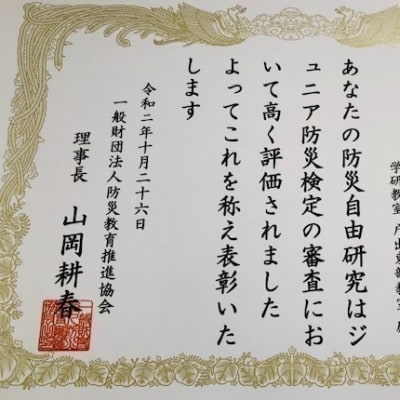 学研教室 戸出東部教室
あなたの防災自由研究はジ
ュニア防災検定の審査にお
いて高く評価されました
よってこれを称え表彰いた
します
令和二年十月二十六日
一般財団法人防災教育推進協会
理事長 山岡耕春